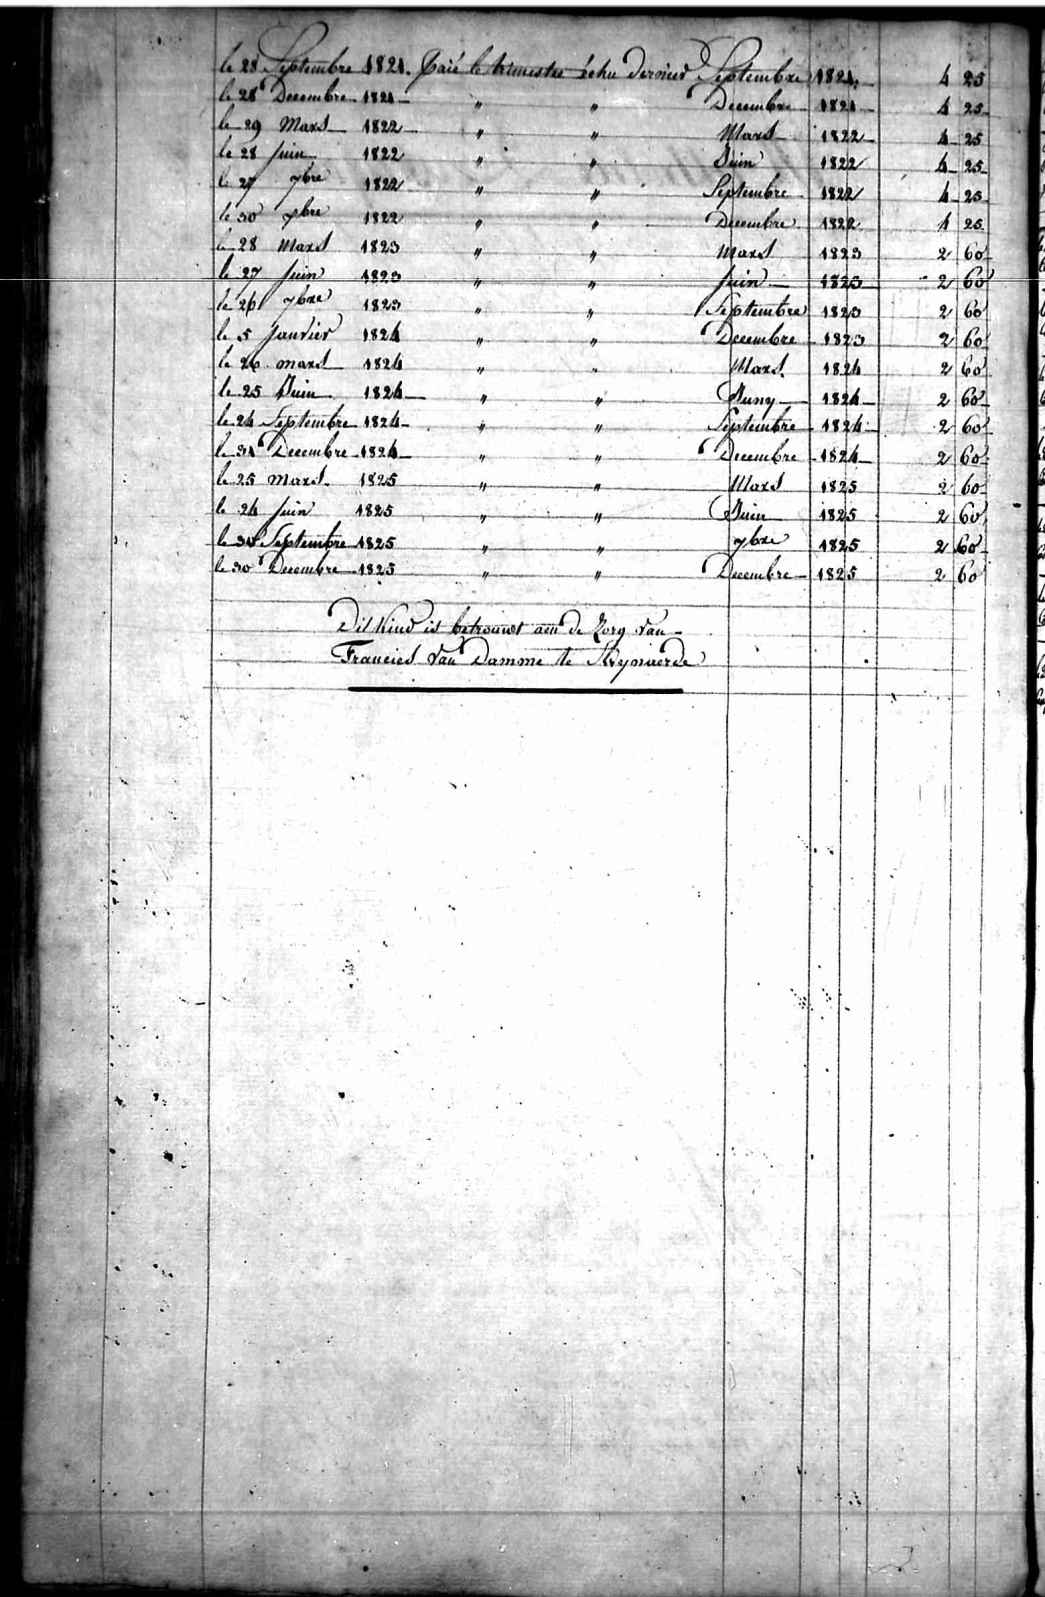 le 28 Septembre 1821. Paié le trimestre échu dernier Septembre 1821. 4 25
le 28 Decembre 1821 " " Decembre 1821 4 25
le 29 Mars 1822 " " Mars 1822 4 25
le 28 juin 1822 " " Juin 1822 4 25
le 27 7bre 1822 " " Septembre 1822 4 25
le 30 1822 " " Decembre 1822 4 25
le 28 Mars 1823 " " Mars 1823 2 60
le 27 juin 1823 " " juin 1823 2 60
le 26 7bre 1823 " " Septembre 1823 2 60
le 5 Janvier 1824 " " Decembre 1823 2 60
le 26 mars 1824 " " Mars 1824 2 60
le 25 Juin 1824 " " Juny 1824 2 60
le 24 Septembre 1824 " " Septembre 1824 2 60
le 31 Decembre 1824 " " Decembre 1824 2 60
le 25 mars 1825 " " Mars 1825 2 60
le 24 juin 1825 " " Juin 1825 2 60
le 30 Septembre 1825 " " 7bre 1825 2 60
le 30 Decembre 1825 " " Decembre 1825 2 60
Dit Kind is betrouwt aen de Zorg van
Francies Van Damme te